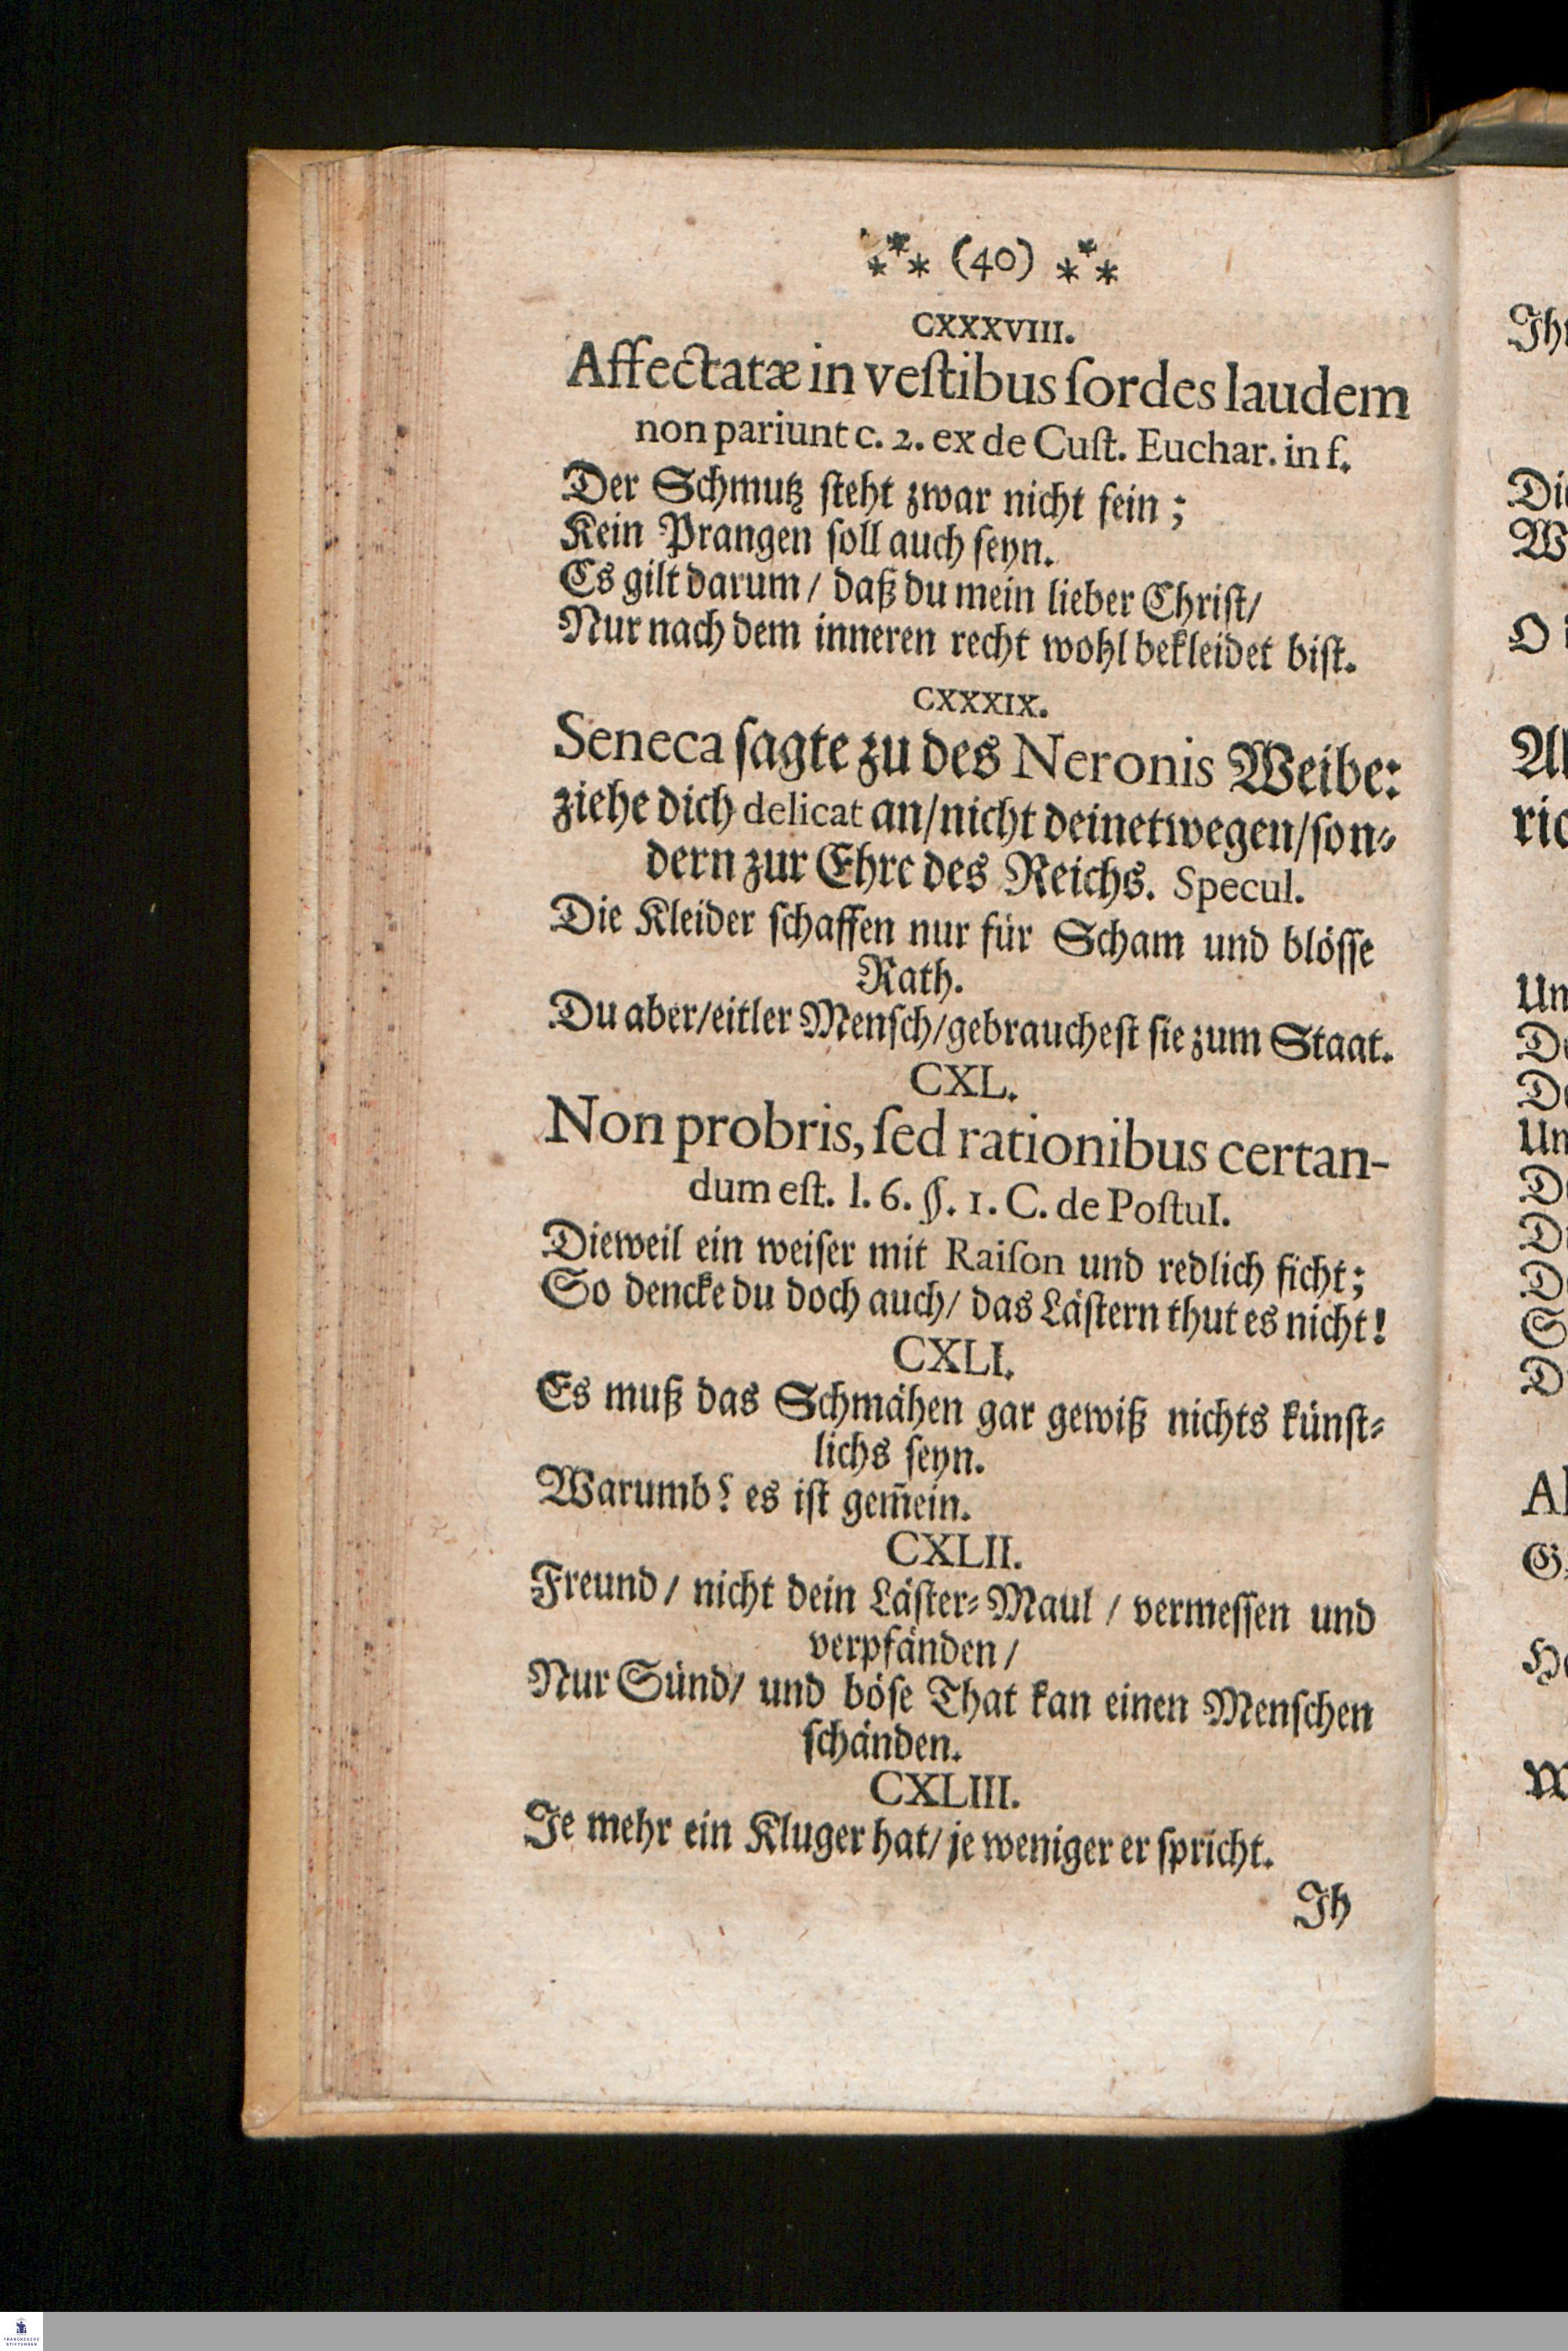 ⁎⁎⁎ (40) ⁎⁎⁎
CXXXVIII.
Affectatæ in veſtibus ſordes laudem
non pariunt c. 2. ex de Cuſt. Euchar. in f.
Der Schmutz ſteht zwar nicht fein;
Kein Prangen ſoll auch ſeyn.
Es gilt darum / daß du mein lieber Chriſt /
Nur nach dem inneren recht wohl bekleidet biſt.
CXXXIX.
Seneca ſagte zu des Neronis Weibe:
ziehe dich delicat an / nicht deinetwegen / ſon-
dern zur Ehre des Reichs. Specul.
Die Kleider ſchaffen nur für Scham und blöſſe
Rath.
Du aber / eitler Menſch / gebraucheſt ſie zum Staat.
CXL.
Non probris, ſed rationibus certan-
dum eſt. l. 6. §. 1. C. de Poſtul.
Dieweil ein weiſer mit Raiſon und redlich ficht;
So dencke du doch auch / das Läſtern thut es nicht!
CXLI.
Es muß das Schmähen gar gewiß nichts künſt-
lichs ſeyn.
Warumb? es iſt gem̃ein.
CXLII.
Freund / nicht dein Läſter-Maul / vermeſſen und
verpfänden /
Nur Sünd / und böſe That kan einen Menſchen
ſchänden.
CXLIII.
Je mehr ein Kluger hat / je weniger er ſpricht.
Jh